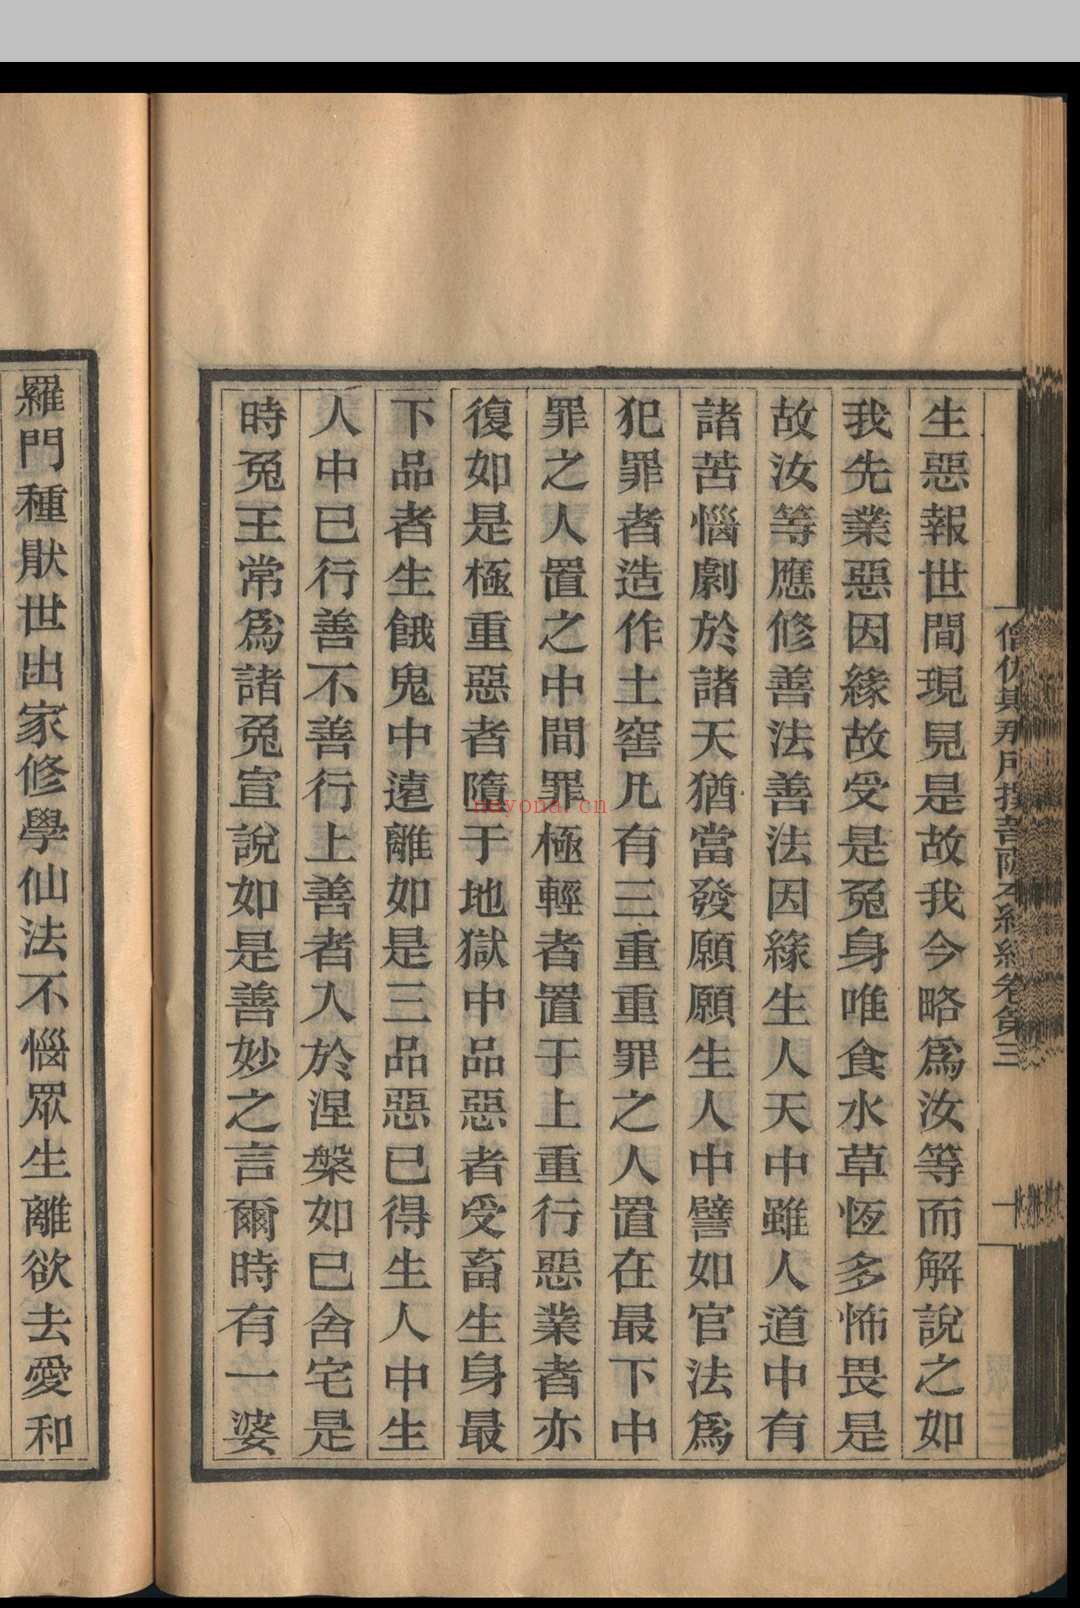 僧伽斯那所撰菩薩本緣經卷第三
一
生惡報世間現見是故我今略爲汝等而解說之如
我先業惡因緣故受是兔身唯食水草恆多怖畏是
故汝等應修善法善法因緣生人天中雖人道中有
諸苦惱劇於諸天猶當發願願生人中譬如官法爲
犯罪者造作土窖凡有三重重罪之人置在最下中
罪之人置之中間罪極輕者置于上重行惡業者亦
復如是極重惡者隨于地獄中品惡者受畜生身最
下品者生餓鬼中遠離如是三品惡已得生人中生
人中已行善不善行上善者入於涅槃如已舍宅是
時兔王常爲諸兔宣說如是善妙之言爾時有一婆
羅門種厭世出家修學仙法不惱眾生離欲去愛和
nayona.cn